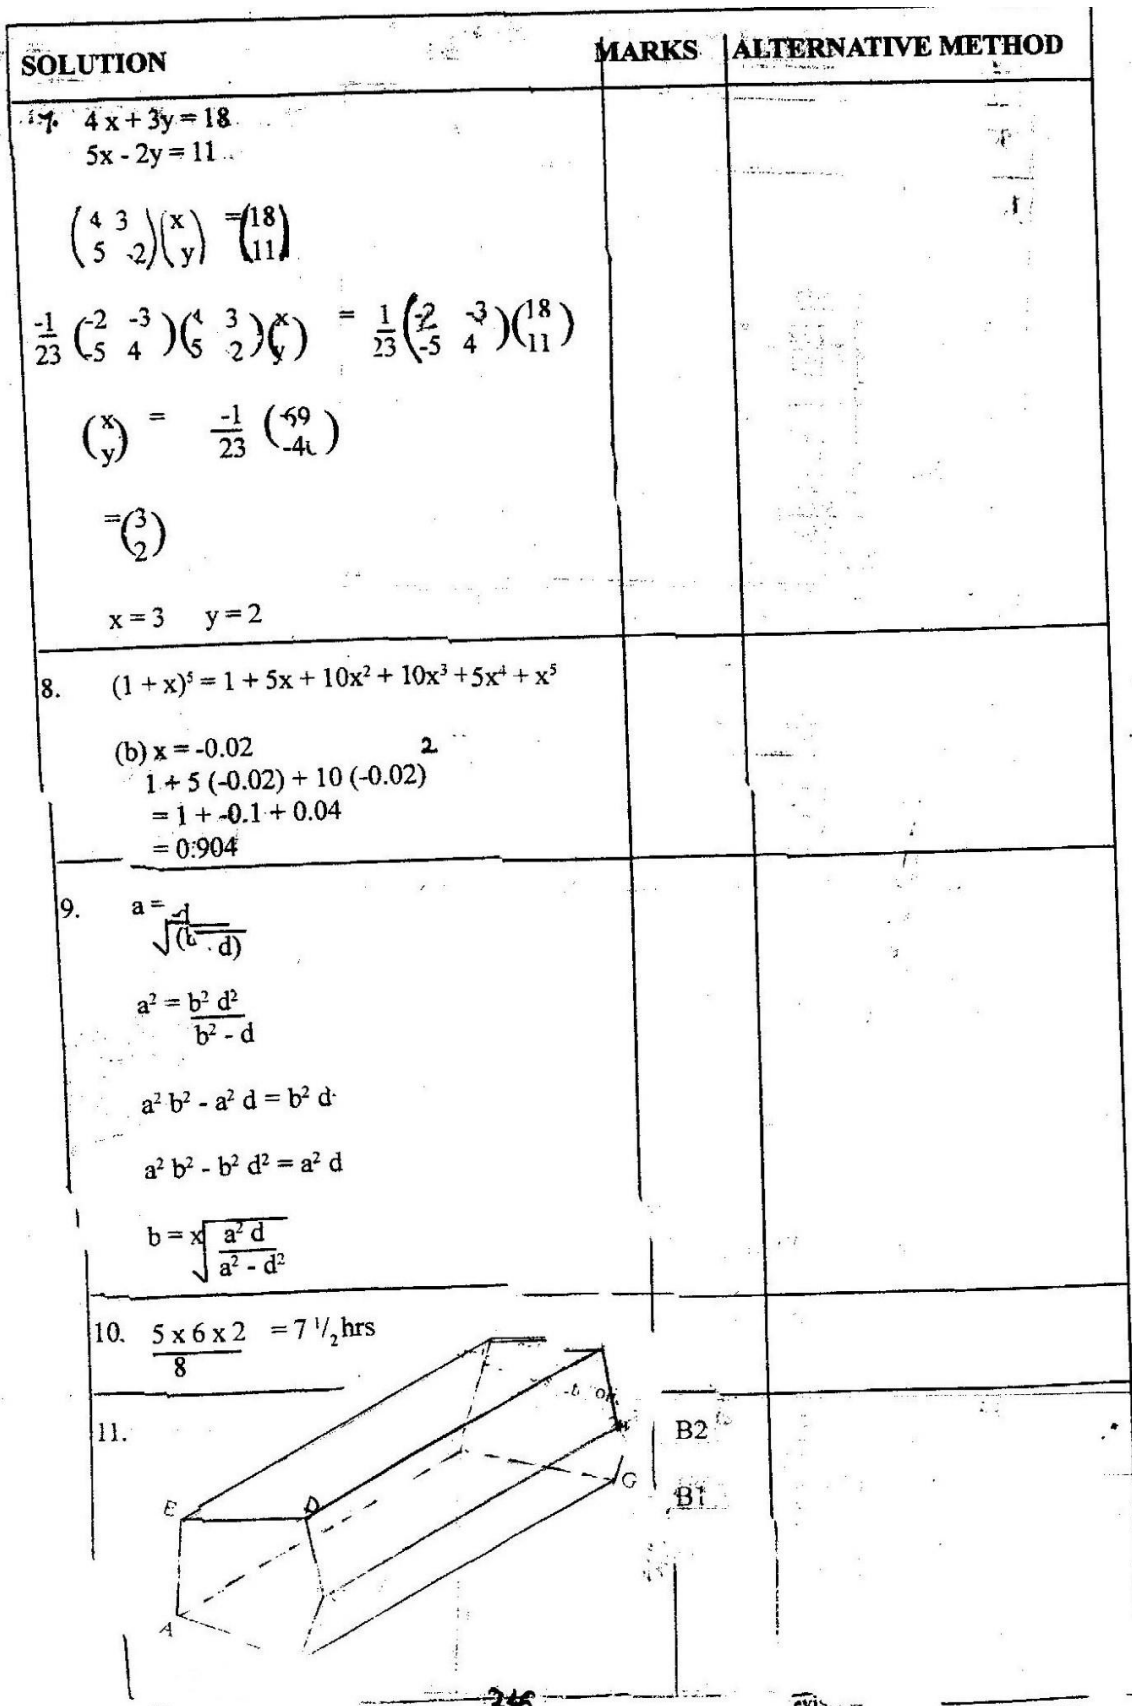 SOLUTION MARKS ALTERNATIVE METHOD
7. 4x + 3y = 18
5x - 2y = 11
( 4 3 ) ( x ) = ( 18 )
( 5 -2 ) ( y ) ( 11 )
-1 ( -2 -3 ) ( 4 3 ) ( x ) = 1 ( -2 -3 ) ( 18 )
23 ( -5 4 ) ( 5 2 ) ( y ) 23 ( -5 4 ) ( 11 )
( x ) = -1 ( -69 )
( y ) 23
= ( 3 )
( 2 )
x = 3 y = 2
8. (1 + x)⁵ = 1 + 5x + 10x² + 10x³ + 5x⁴ + x⁵
(b) x = -0.02
1 + 5 (-0.02) + 10 (-0.02)²
= 1 + -0.1 + 0.04
= 0.904
9. a =
√ d)
a² = b² d²
b² - d
a² b² - a² d = b² d
a² b² - b² d² = a² d
b = x√ a² d
a² - d²
10. 5 x 6 x 2 = 7 ¹/₂ hrs
8
11. B2
B1
E D
G
A